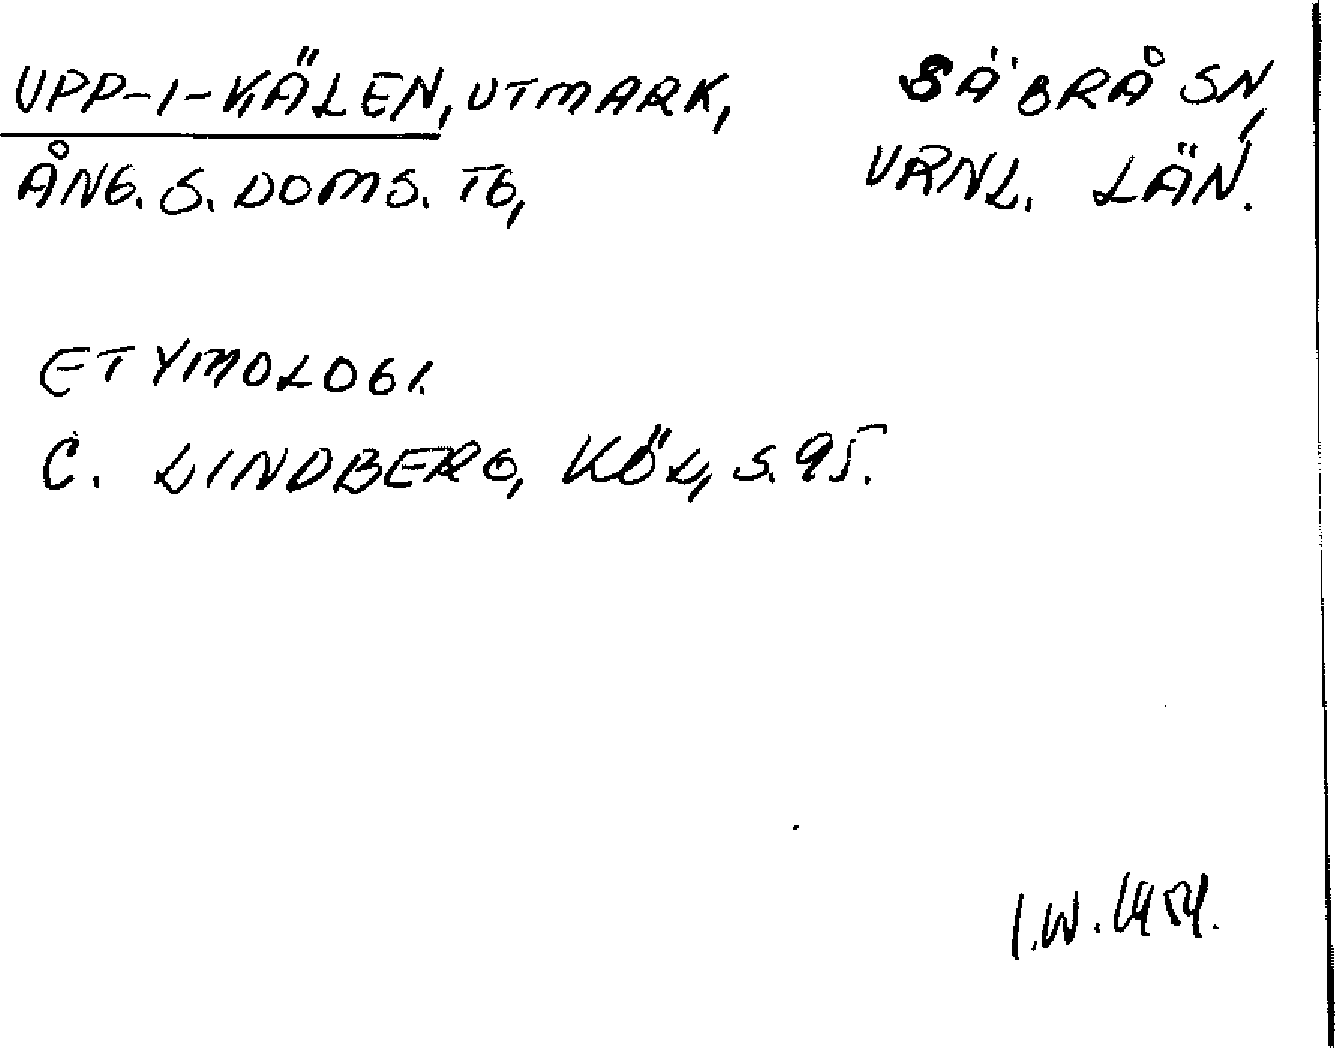 UPP-I-KÄLEN, UTMARK, SÄBRÅ SN,
ÅNG. S. DOMS. TG, VRNL. LÄN.
ETYMOLOGI.
C. LINDBERG, KÖL, S. 95.
I.W.